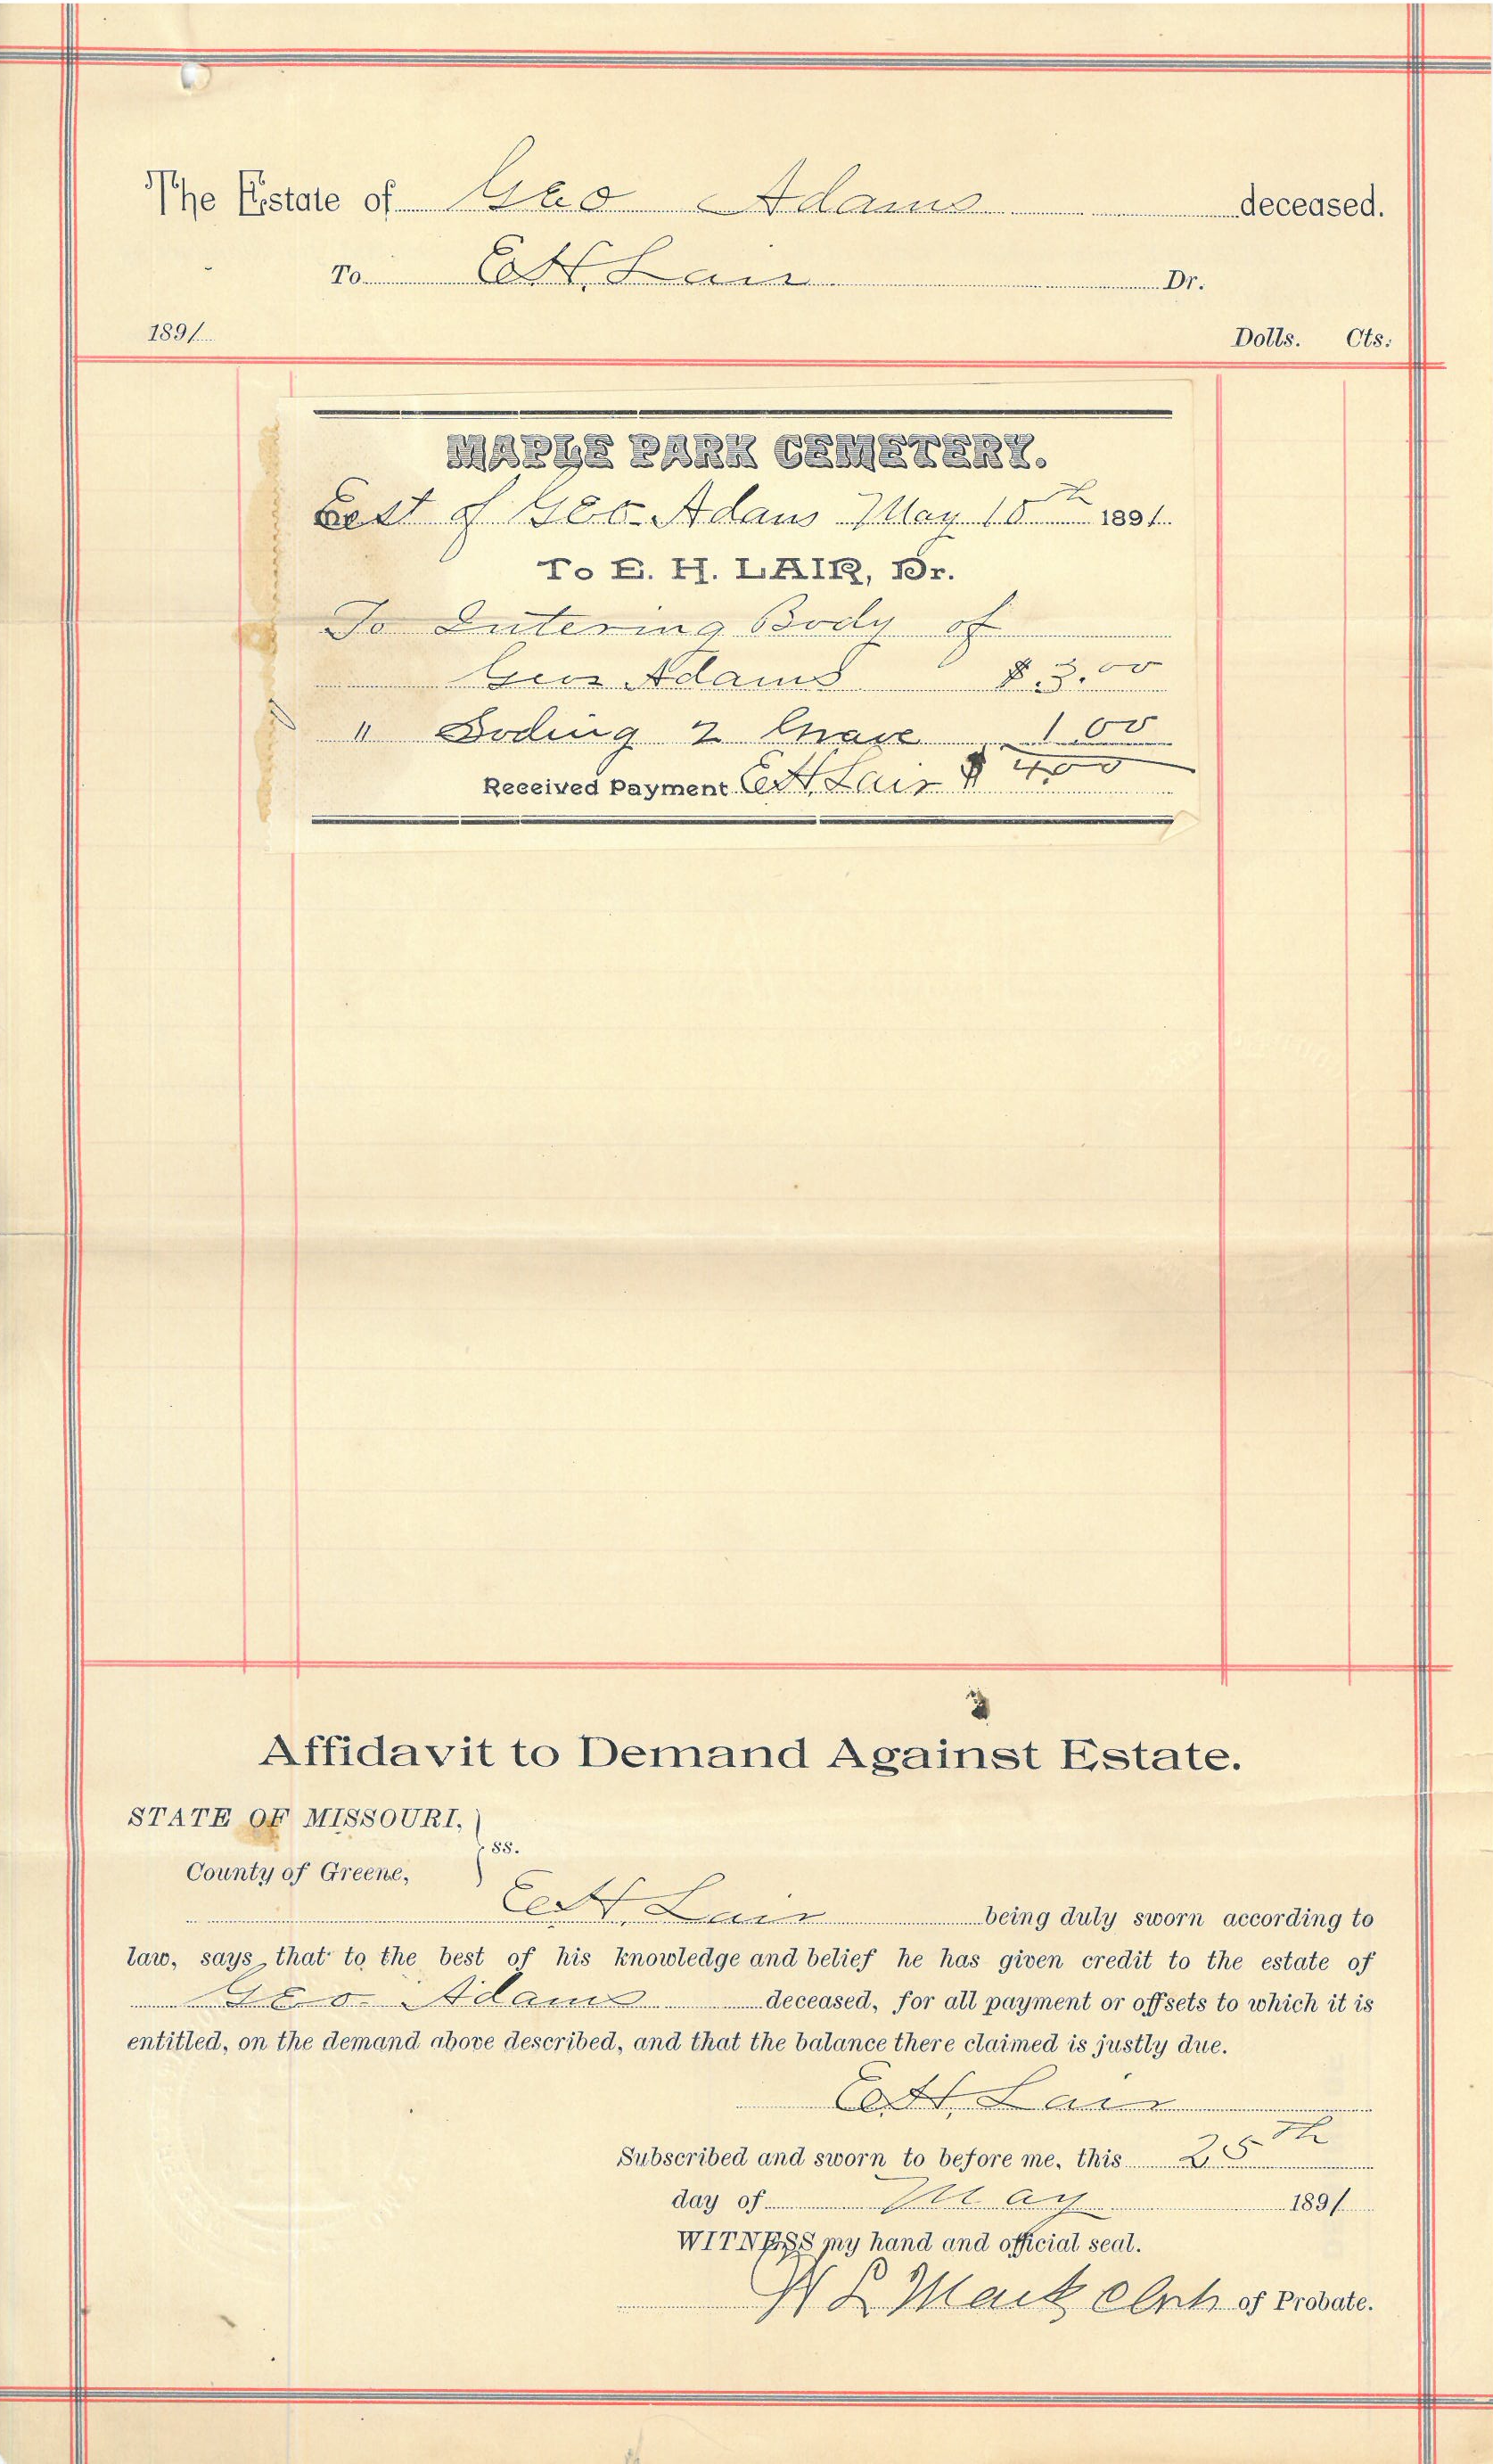 The Estate of Geo Adams deceased.
To E. H. Lair Dr.
1891 Dolls. Cts.
MAPLE PARK CEMETERY.
Est of Geo. Adams May 18th 1891
To E. H. LAIR, Dr.
To Intering Body of
Geo Adams $3.00
" Soding 2 Graves 1 00
Received Payment E. H. Lair $ 4.00
Affidavit to Demand Against Estate.
STATE OF MISSOURI,
ss.
County of Greene,
E. H. Lair being duly sworn according to
law, says that to the best of his knowledge and belief he has given credit to the estate of
Geo. Adams deceased, for all payment or offsets to which it is
entitled, on the demand above described, and that the balance there claimed is justly due.
E. H. Lair
Subscribed and sworn to before me, this 25th
day of May 1891
WITNESS my hand and official seal.
W L Mack Clerk of Probate.